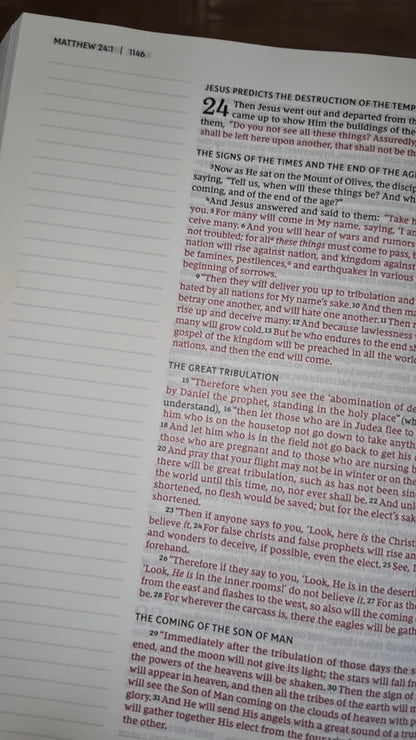 MATTHEW 24:1 | 1146
JESUS PREDICTS THE DESTRUCTION OF THE TEMP
24 Then Jesus went out and departed from th
came up to show Him the buildings of the
them, "Do you not see all these things? Assuredly,
shall be left here upon another, that shall not be th
THE SIGNS OF THE TIMES AND THE END OF THE AG
3Now as He sat on the Mount of Olives, the disci
saying, "Tell us, when will these things be? And wh
coming, and of the end of the age?"
4And Jesus answered and said to them: "Take h
you. 5 For many will come in My name, saying, 'I am
ceive many. 6 And you will hear of wars and rumors
not troubled; for all these things must come to pass, b
nation will rise against nation, and kingdom against
be famines, pestilences, and earthquakes in various
beginning of sorrows.
9"Then they will deliver you up to tribulation and
hated by all nations for My name's sake. 10 And then ma
betray one another, and will hate one another. 11 Then
rise up and deceive many. 12 And because lawlessness
many will grow cold. 13 But he who endures to the end sh
gospel of the kingdom will be preached in all the world
nations, and then the end will come.
THE GREAT TRIBULATION
15 "Therefore when you see the 'abomination of d
by Daniel the prophet, standing in the holy place" (wh
understand), 16 "then let those who are in Judea flee to
him who is on the housetop not go down to take anyth
18 And let him who is in the field not go back to get his
those who are pregnant and to those who are nursing b
20 And pray that your flight may not be in winter or on the
there will be great tribulation, such as has not been sin
the world until this time, no, nor ever shall be. 22 And unl
shortened, no flesh would be saved; but for the elect's sak
shortened.
23 "Then if anyone says to you, 'Look, here is the Christ
believe it. 24 For false christs and false prophets will rise an
and wonders to deceive, if possible, even the elect. 25 See, I
forehand.
26 "Therefore if they say to you, 'Look, He is in the desert
'Look, He is in the inner rooms!' do not believe it. 27 For as th
from the east and flashes to the west, so also will the coming
be. 28 For wherever the carcass is, there the eagles will be gath
THE COMING OF THE SON OF MAN
29 "Immediately after the tribulation of those days the s
ened, and the moon will not give its light; the stars will fall fr
the powers of the heavens will be shaken. 30 Then the sign of
will appear in heaven, and then all the tribes of the earth will m
will see the Son of Man coming on the clouds of heaven with p
glory. 31 And He will send His angels with a great sound of a tru
will gather together His elect from the four
the other.